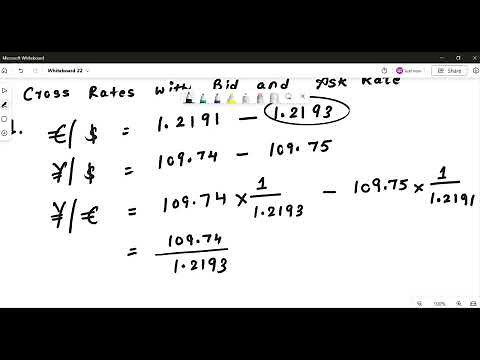 Microsoft Whiteboard
Whiteboard 22
Just now
Share
Cross Rates with Bid and Ask Rate
1.
€/$ = 1.2191 - 1.2193
¥/$ = 109.74 - 109.75
¥/€ = 109.74 × 1/1.2193 - 109.75 × 1/1.2191
= 109.74/1.2193
100%